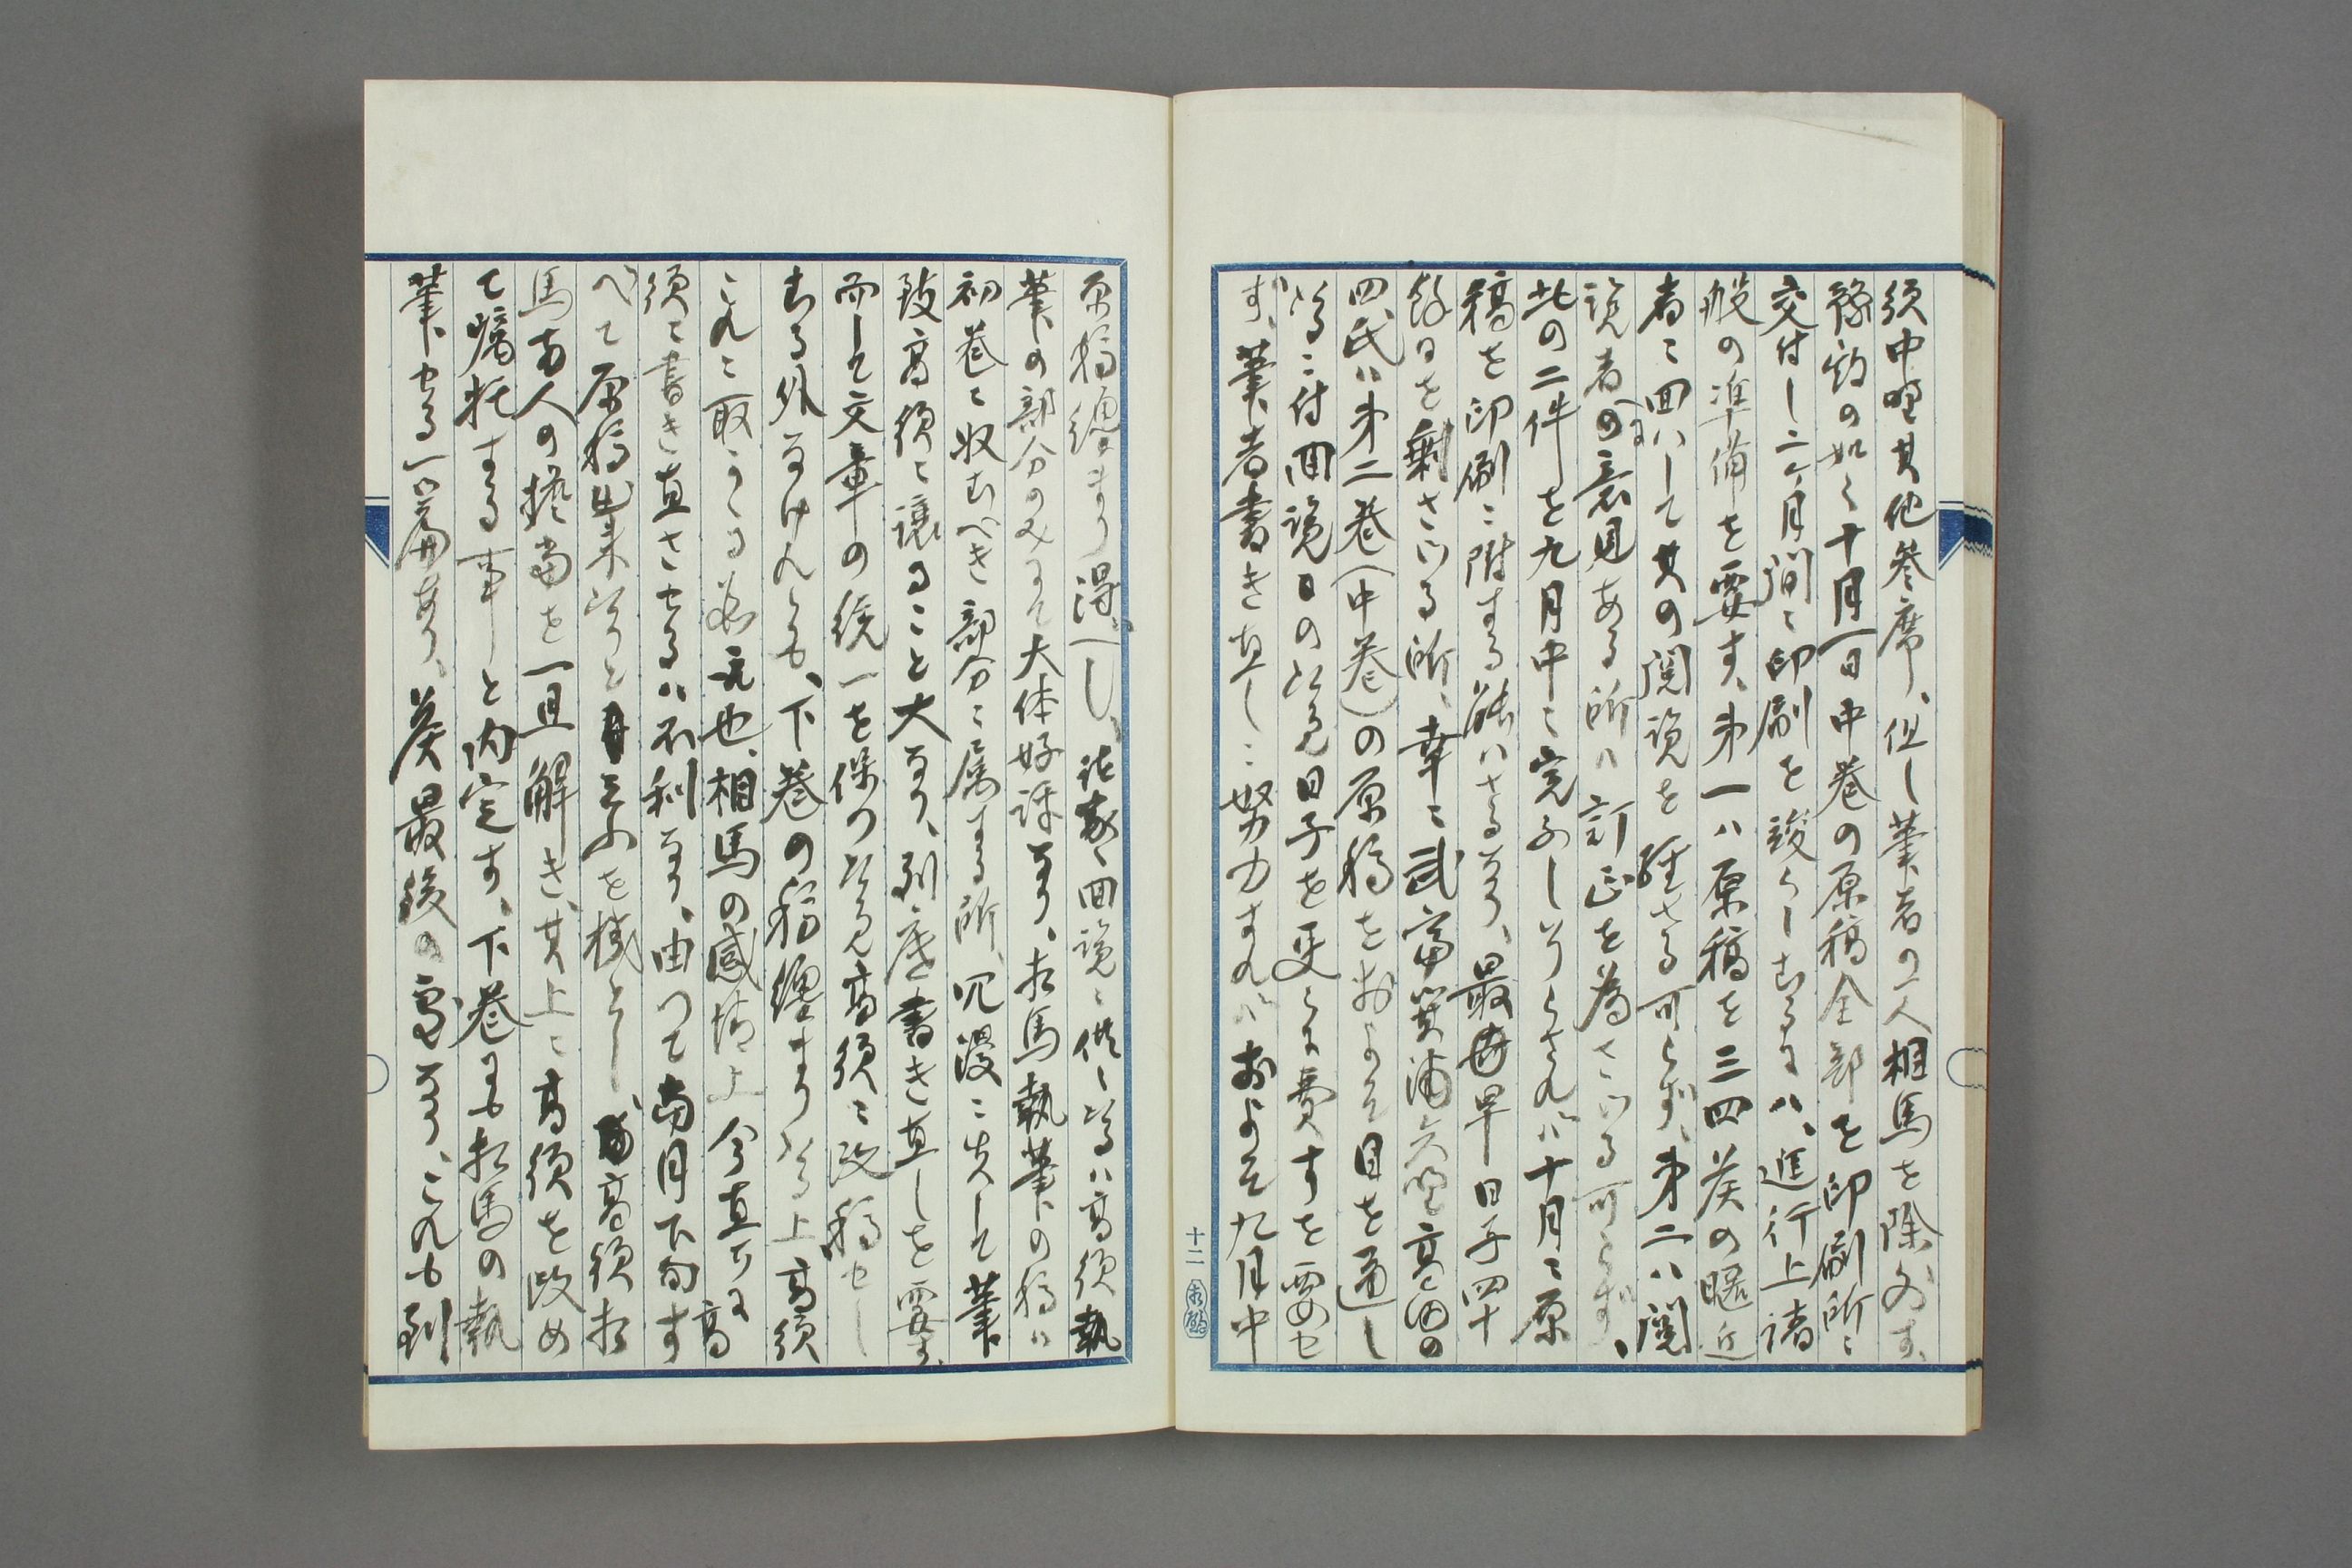 須中野其他参席、但し筆者の一人相馬を除外す、
予約の如く十月一日中巻の原稿全部を印刷所ニ
交付し二ヶ月間ニ印刷を竣らしむるにハ、進行上諸
般の準備を要す、第一ハ原稿を三四美の曙近
者ニ回ハして其の閲読を経せる可らず、第二ハ閲
読者の意見ある所ハ訂正を為さゝる可らず、
此の二件を九月中ニ完了し了らされバ十月ニ原
稿を印刷ニ附する能ハさるなり、最早日子四十
余日を剰さゝる所、幸ニ武富箕浦矢野高田の
四氏ハ第二巻（中巻）の原稿をおよそ目を通し
くるニ付回読日の外日子を更らに費すを要せ
ず、筆者書き直しニ努力すれバおよそ九月中
原稿纏まり得べし、諸家回読ニ供しくるハ高須執
筆の部分のみにて大体好評なり、相馬執筆の稿ハ
初巻ニ収むべき部分ニ属する所、冗漫ニ失して筆
致高須ニ譲ること大なり、到底書き直しを要す、
而して文章の統一を保つ必要高須ニ改稿せし
むる外なけれとも、下巻の稿纏まりくる上高須
これニ取りくる為元也、相馬の感情上今直ちに高
須ニ書き直させるハ不利なり、由つて当月下旬す
べて原稿出来了りと云ふを機とし高須相
馬両人の擔当を一旦解き、其上ニ高須を改め
て嘱托する事しと内定す、下巻にも相馬の執
筆せる一篇あり、美最後の章なり、これも到
十二